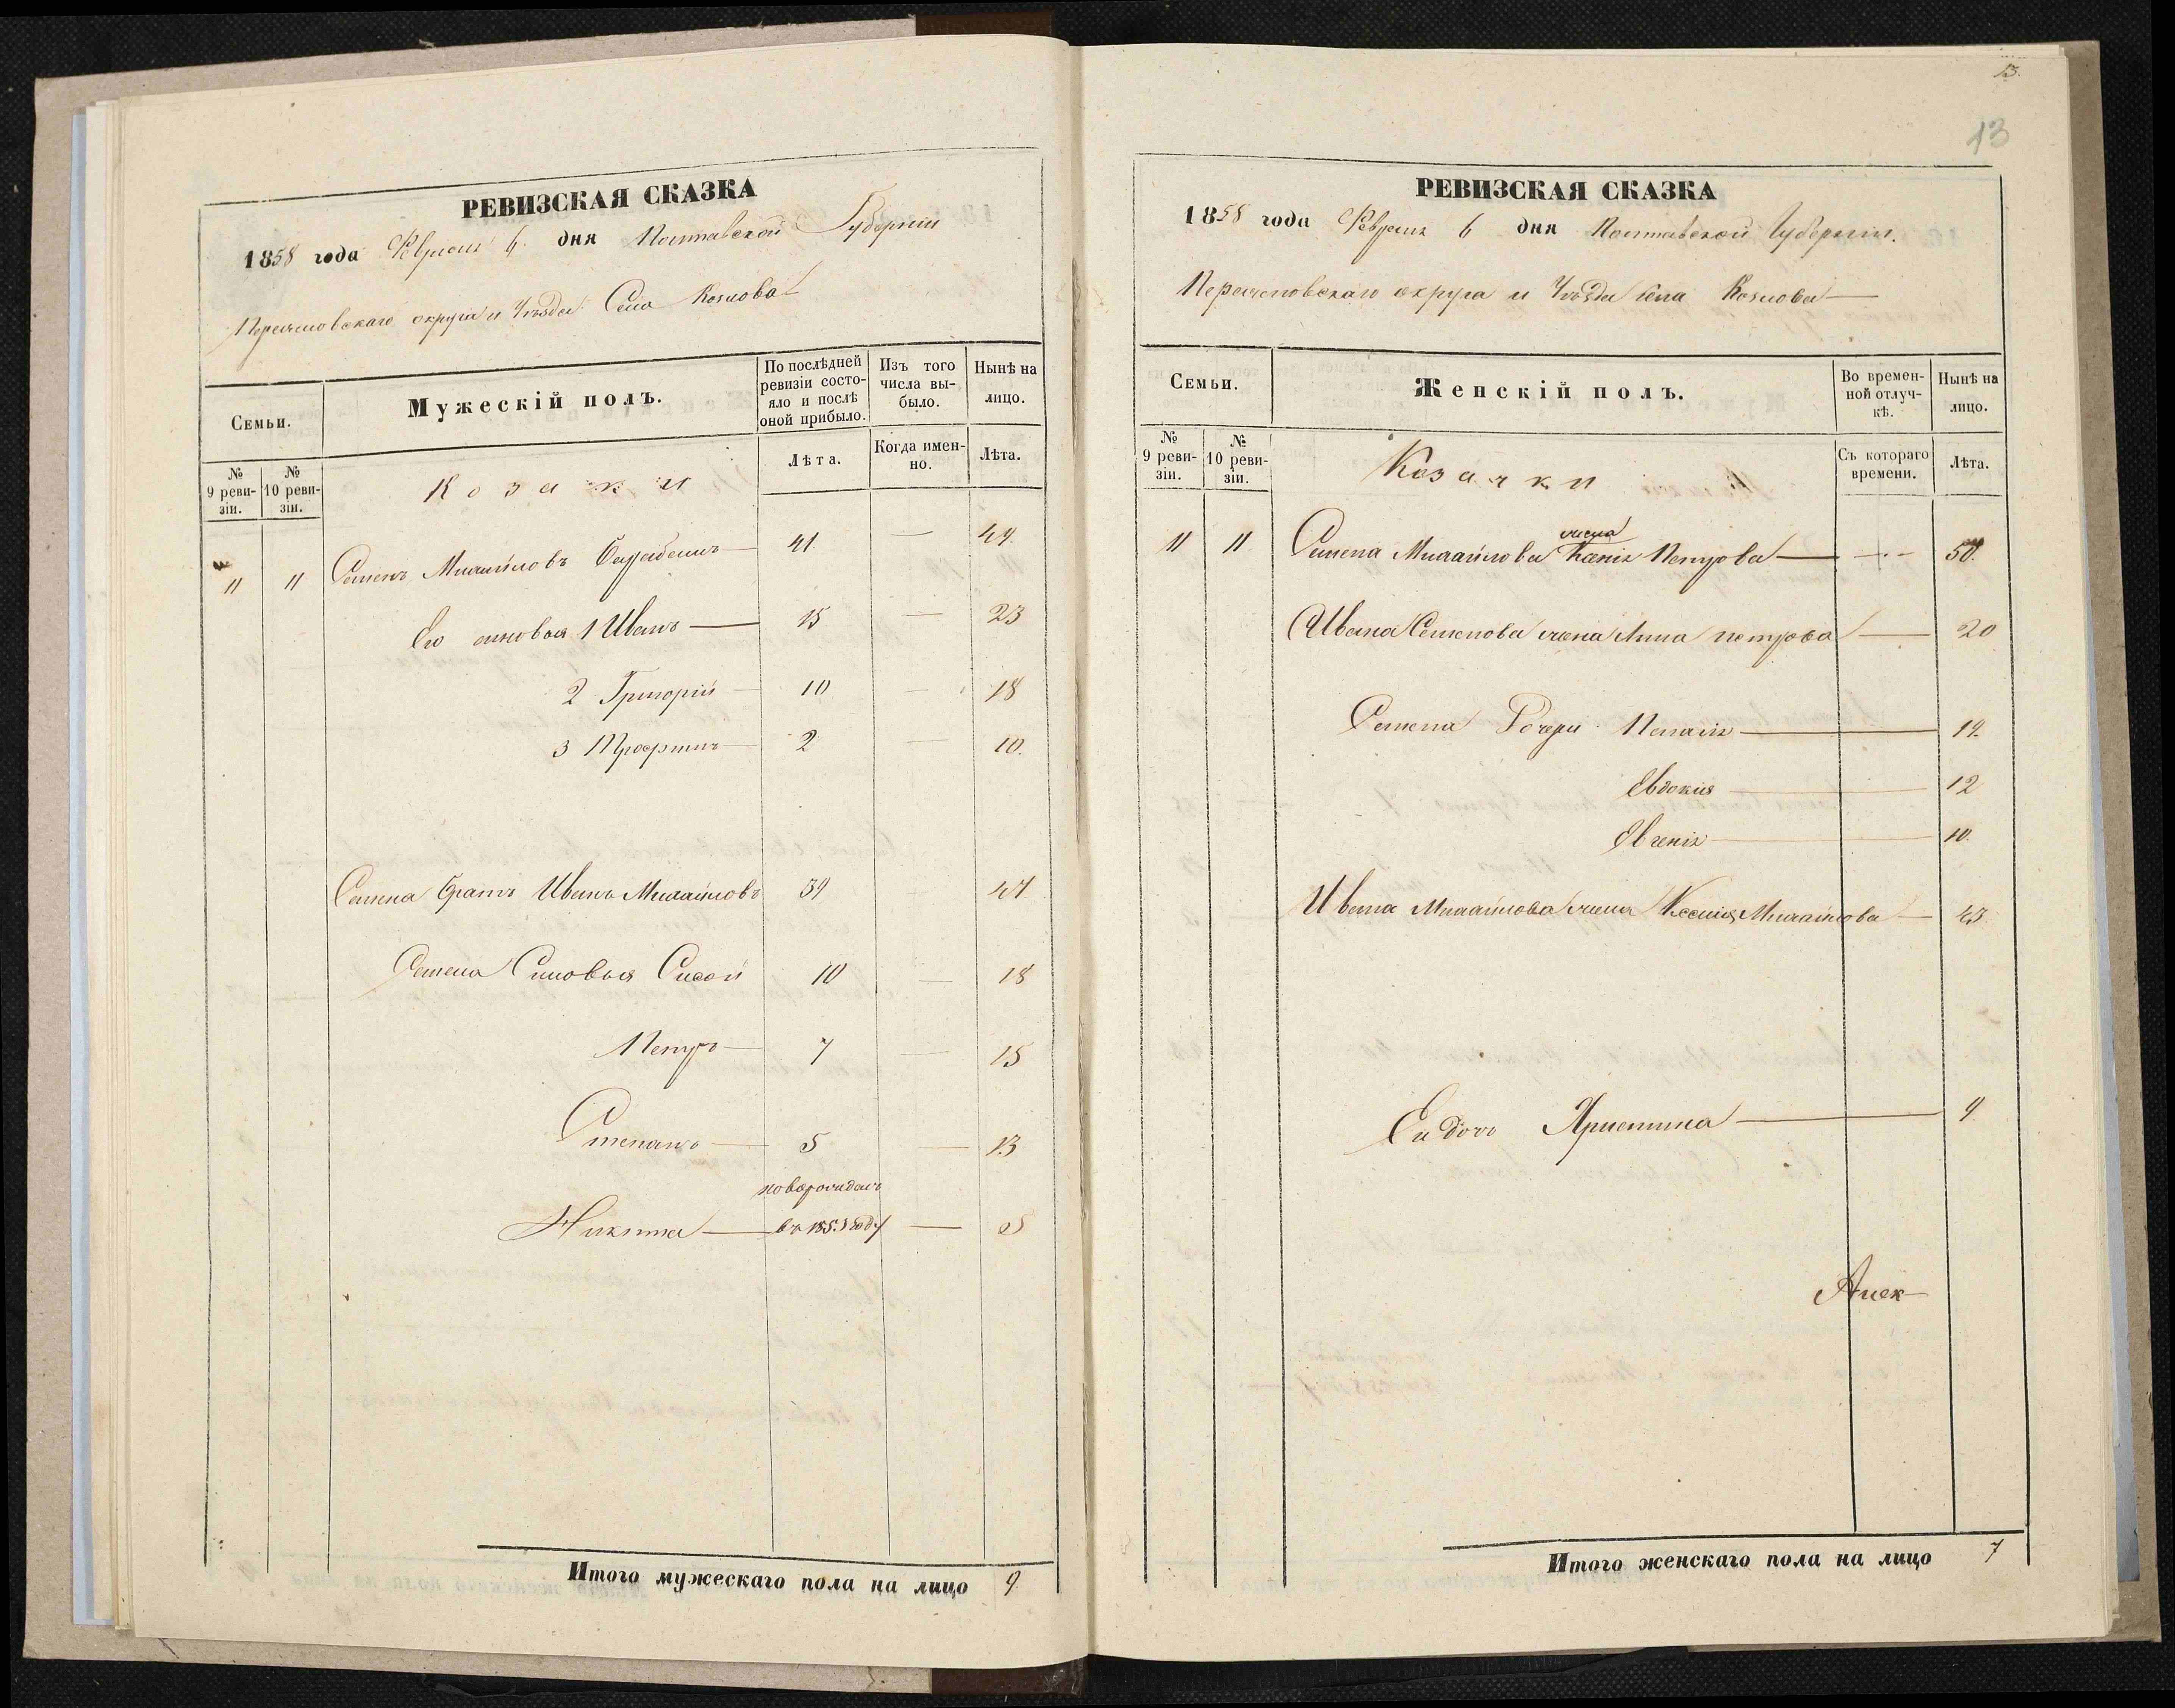 РЕВИЗСКАЯ СКАЗКА
1858 года Февраля 6 дня Полтавской Губерніи
Переяславскаго округа и Уѣзда Села Козлова
Семьи.
Мужескій полъ.
По послѣдней ревизіи состояло и послѣ оной прибыло.
Изъ того числа выбыло.
Нынѣ на лицо.
№ 9 ревизіи.
№ 10 ревизіи.
Лѣта.
Когда именно.
Лѣта.
Козаки
11 11 Семенъ Михайловъ 41. — 49.
Его сыновья 1 Иванъ — 15 — 23
2 Григорій — 10 — 18
3 — 2 — 10.
Семена братъ Иванъ Михайловъ 39 47
Семена Сыновья Сисой 10 — 18
Петръ — 7 — 15
Степанъ — 5 — 13
новорожденъ
Никита — въ 1853 году — 5
Итого мужескаго пола на лицо 9
13.
13
РЕВИЗСКАЯ СКАЗКА
1858 года Февраля 6 дня Полтавской Губерніи.
Переяславскаго округа и Уѣзда села Козлова —
Семьи.
Женскій полъ.
Во временной отлучкѣ.
Нынѣ на лицо.
№ 9 ревизіи.
№ 10 ревизіи.
Съ котораго времени.
Лѣта.
Козачки
жена
11 11 Семена Михайлова Петрова — — 50.
Ивана Семенова жена Анна петрова — 20
Семена Дочери Пелагія — 14.
Евдокія — 12
Евгенія — 10.
Ивана Михайлова жена Ксенія Михайлова — 43
Ея дочь Христина — 9
Алек-
Итого женскаго пола на лицо 7